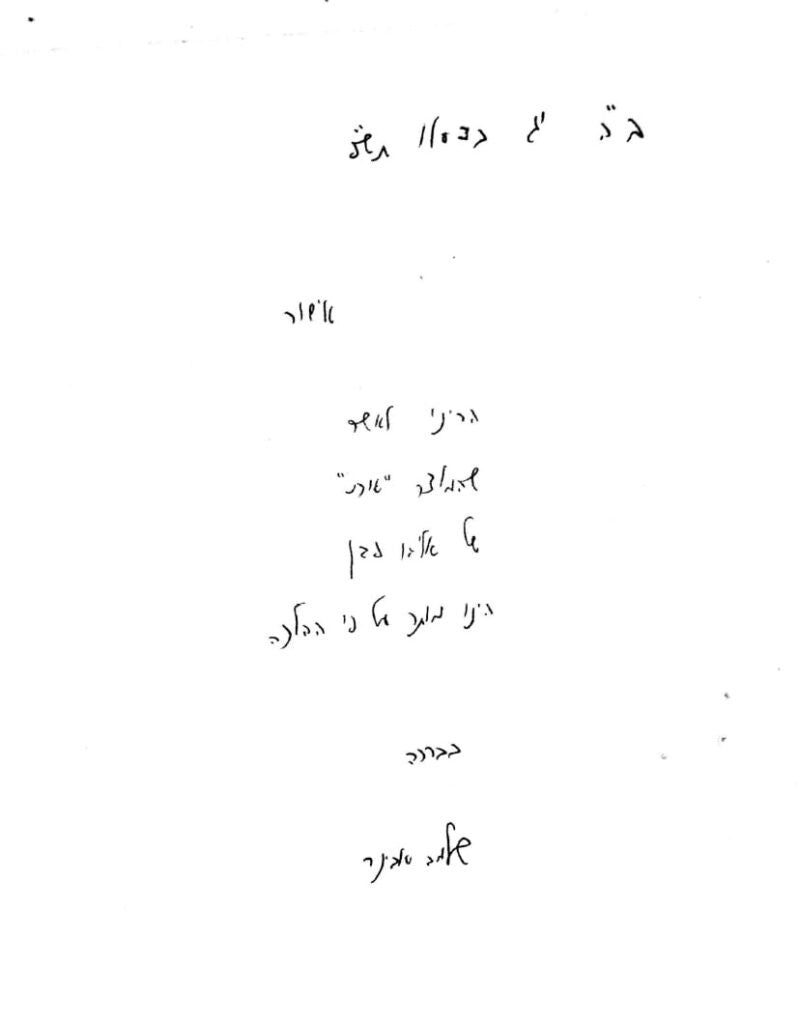 ב"ה י'ג בכסלו תש"פ
אישור
הריני לאשר
שהמוצר
של אליהו
הינו מותר על פי ההלכה
בברכה
שלמה